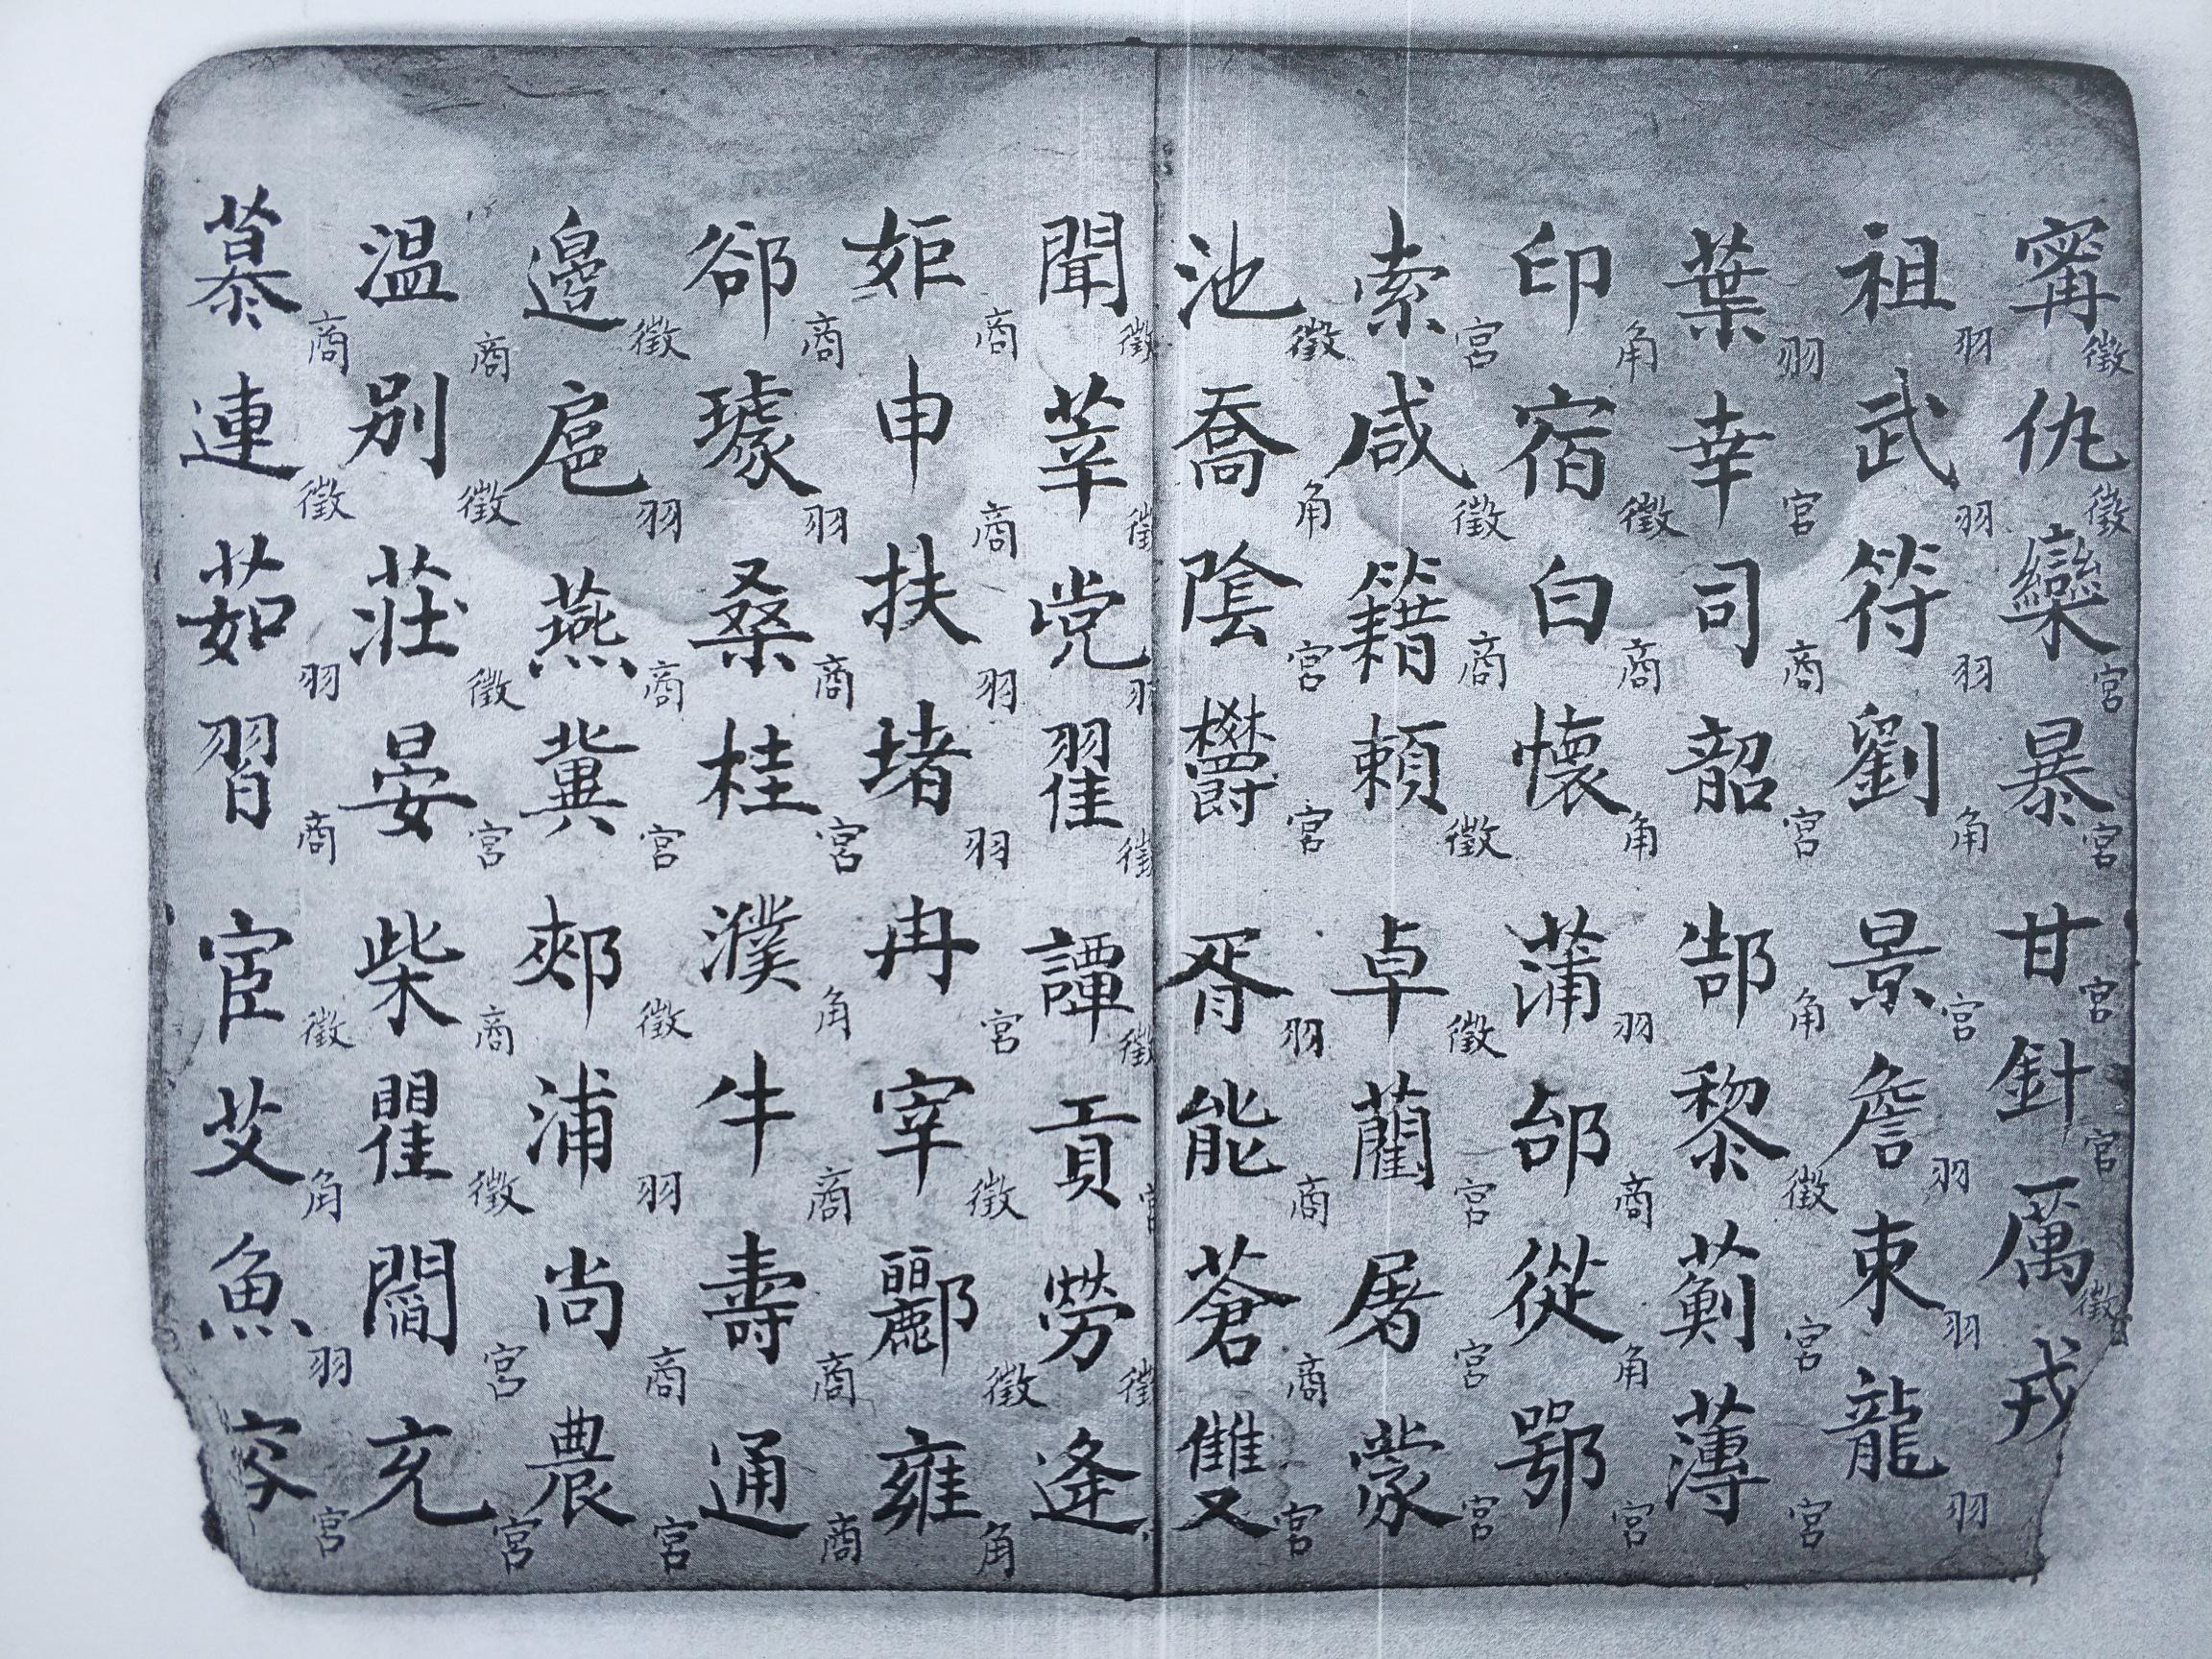 甯徵仇徵欒宮暴宮甘宮針宮厲徵戎
祖羽武羽符羽劉角景宮詹羽束羽龍羽
葉羽幸宮司商韶宮郜角黎徵薊宮薄宮
印角宿徵白商懷角蒲羽邰商從角鄂宮
索宮咸徵籍商賴徵卓徵藺宮屠宮蒙宮
池徵喬角陰宮鬱宮胥羽能商蒼商雙宮
聞徵莘徵党羽翟徵譚徵貢宮勞徵逄
姬商申商扶羽堵羽冉宮宰徵酈徵雍角
郤商璩羽桑商桂宮濮角牛商壽商通商
邊徵扈羽燕商冀宮郟徵浦羽尚商農宮
溫商別徵莊徵晏宮柴商瞿徵閻宮充宮
慕商連徵茹羽習商宦徵艾角魚羽容宮